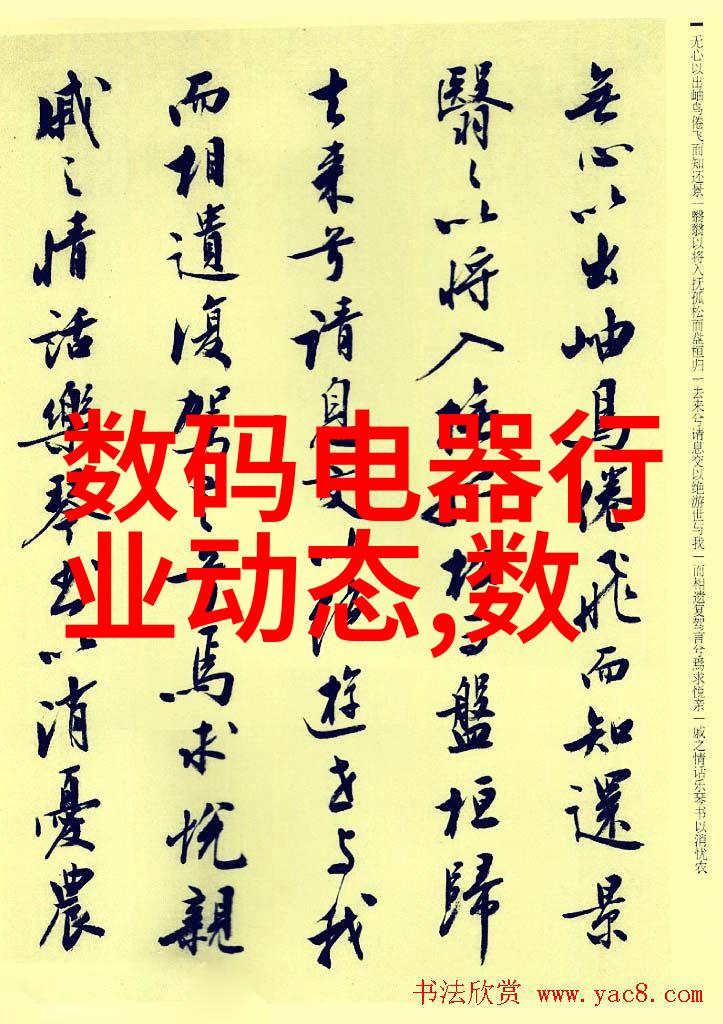 无心以出岫鸟倦飞而知还景一翳翳以将入抚孤松而盘桓归一去来兮请息交以绝游世与我一而相遗复驾言兮焉求悦亲一戚之情话乐琴书以消忧农
無心以出岫鳥倦飛而知還景
翳々以將入撫孤松而盤桓歸
去來兮請息交以絕遊世与我
而相遺復駕言兮焉求悅親
戚之情話樂琴書以消憂農
数码电器行
业动态,数
书法欣赏 @ www.yac8.com